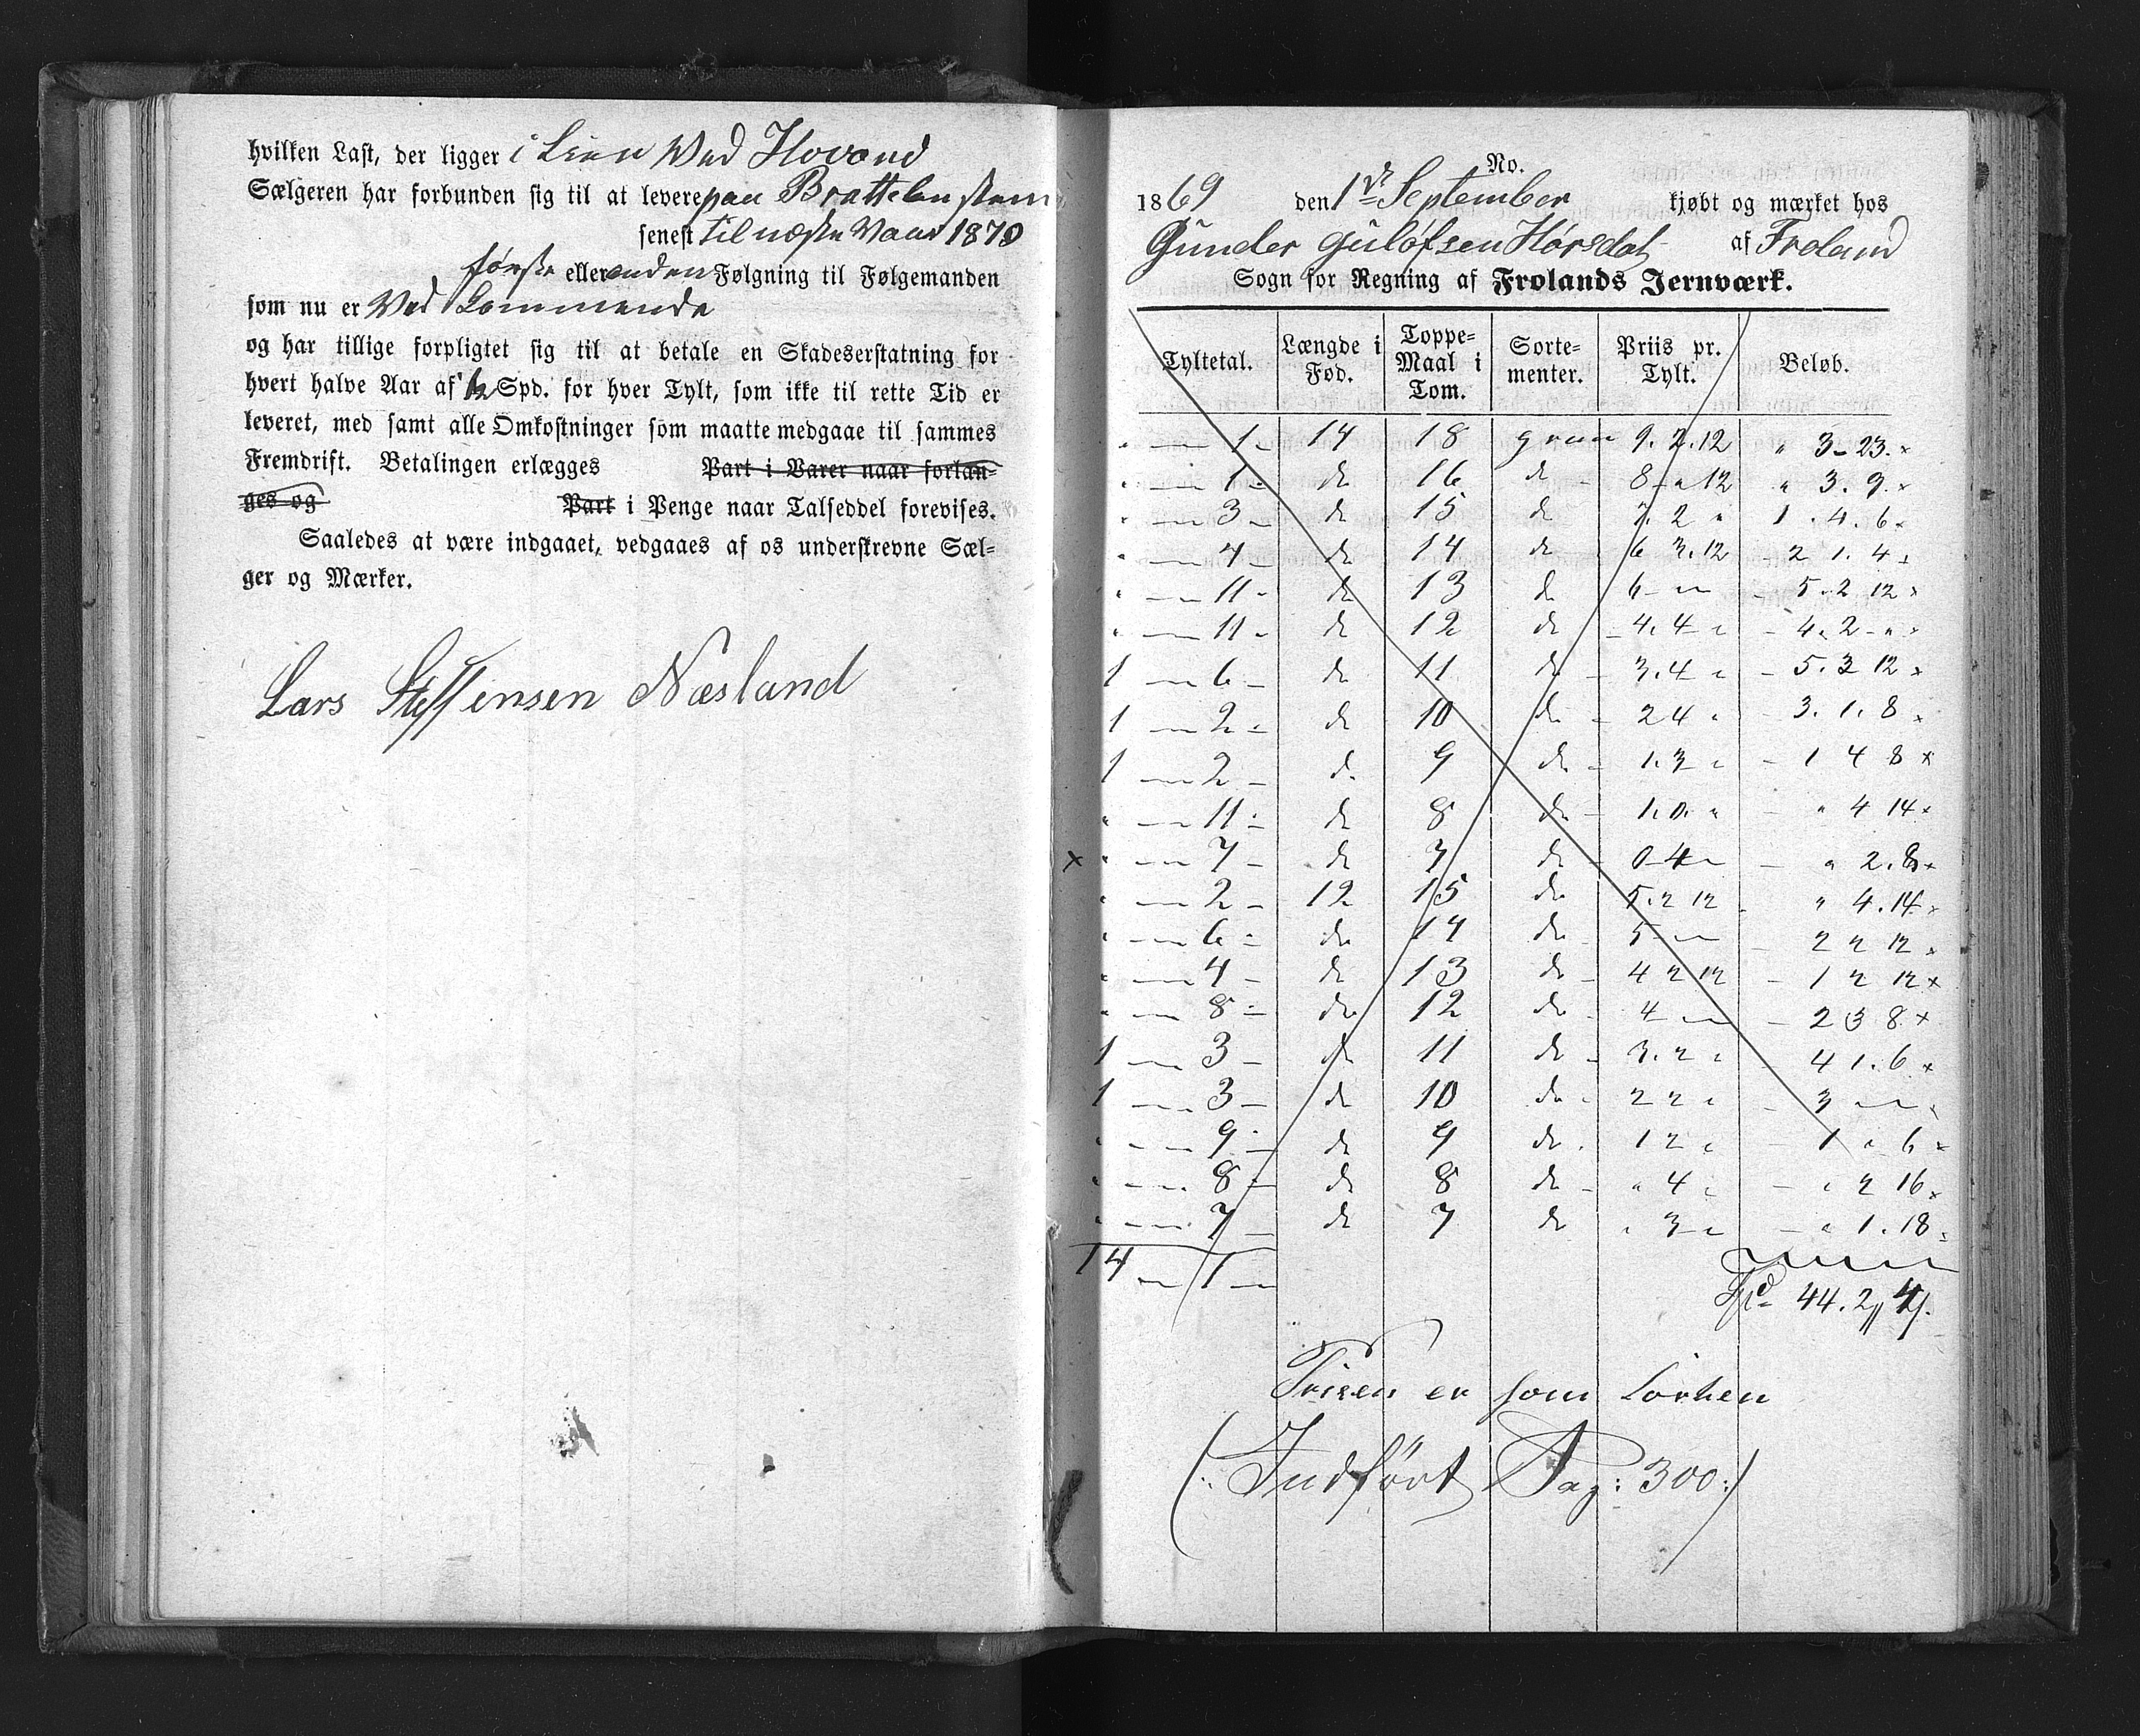 hvilken Last, der ligger i Lien Ved Hovand
Sælgeren har forbunden sig til at levere paa Brattelan
senest til næste Vaar 1870
første eller anden Følgning til Følgemanden
som nu er Ved Kommende
og har tillige forpligtet sig til at betale en Skadeserstatning for
hvert halve Aar af ½ Spd. for hver Tylt, som ikke til rette Tid er
leveret, med samt alle Omkostninger som maatte medgaae til sammes
Fremdrift. Betalingen erlægges Part i Varer naar forlan=
ges og Part i Penge naar Talseddel forevises.
Saaledes at være indgaaet, vedgaaes af os underskrevne Sæl=
ger og Mærker.
Lars Steffensen Næsland
No.
1869 den 1ste September kjøbt og mærket hos
Gunder Gulofsen Hørsdal af Froland
Sogn for Regning af Frolands Jernværk.
Tyltetal. Længde i Fod. Toppe=Maal i Tom. Sorte=menter. Priis pr. Tylt. Beløb.
" — 1 - 14 18 gran 9. 2. 12 " 3 - 23.
" — 1 - do 16 do 8 - " 12 " 3. 9.
" — 3 - do 15 do 7. 2 " 1. 4. 6
" — 4 - do 14 do 6 3. 12 2 1. 4
" — 11 - do 13 do 6 - " 5. 2 12
" — 11 - do 12 do 4. 4 " 4. 2 - "
1 — 6 - do 11 do 3. 4 " 5. 3 12
1 — 2 - do 10 do 2 4 " 3. 1. 8
1 — 2 - do 9 do 1. 3 " 1 4 8
" — 11 - do 8 do 1. 0. " " 4 14
x " — 7 - do 7 do 0 - 4 - " 2. 8
" — 2 - 12 15 do 5. 2 12 " 4. 14
" — 6 - do 14 do 5 - " 2 2 12
" — 4 - do 13 do 4 2 12 1 2 12
" — 8 - do 12 do 4 - " 2 3 8
1 — 3 - do 11 do 3. 2 " 4 1. 6
1 — 3 - do 10 do 2 2 " 3 - "
" — 9 - do 9 do 1 2 " 1 " 6
" — 8 - do 8 do " 4 " " 2 16
" — 7 - do 7 do " 3 " " 1. 18
14 — 1 —
Spd 44. 2 " 4 s.
Prisen er som Lorken
(: Indført Pag: 300 :)